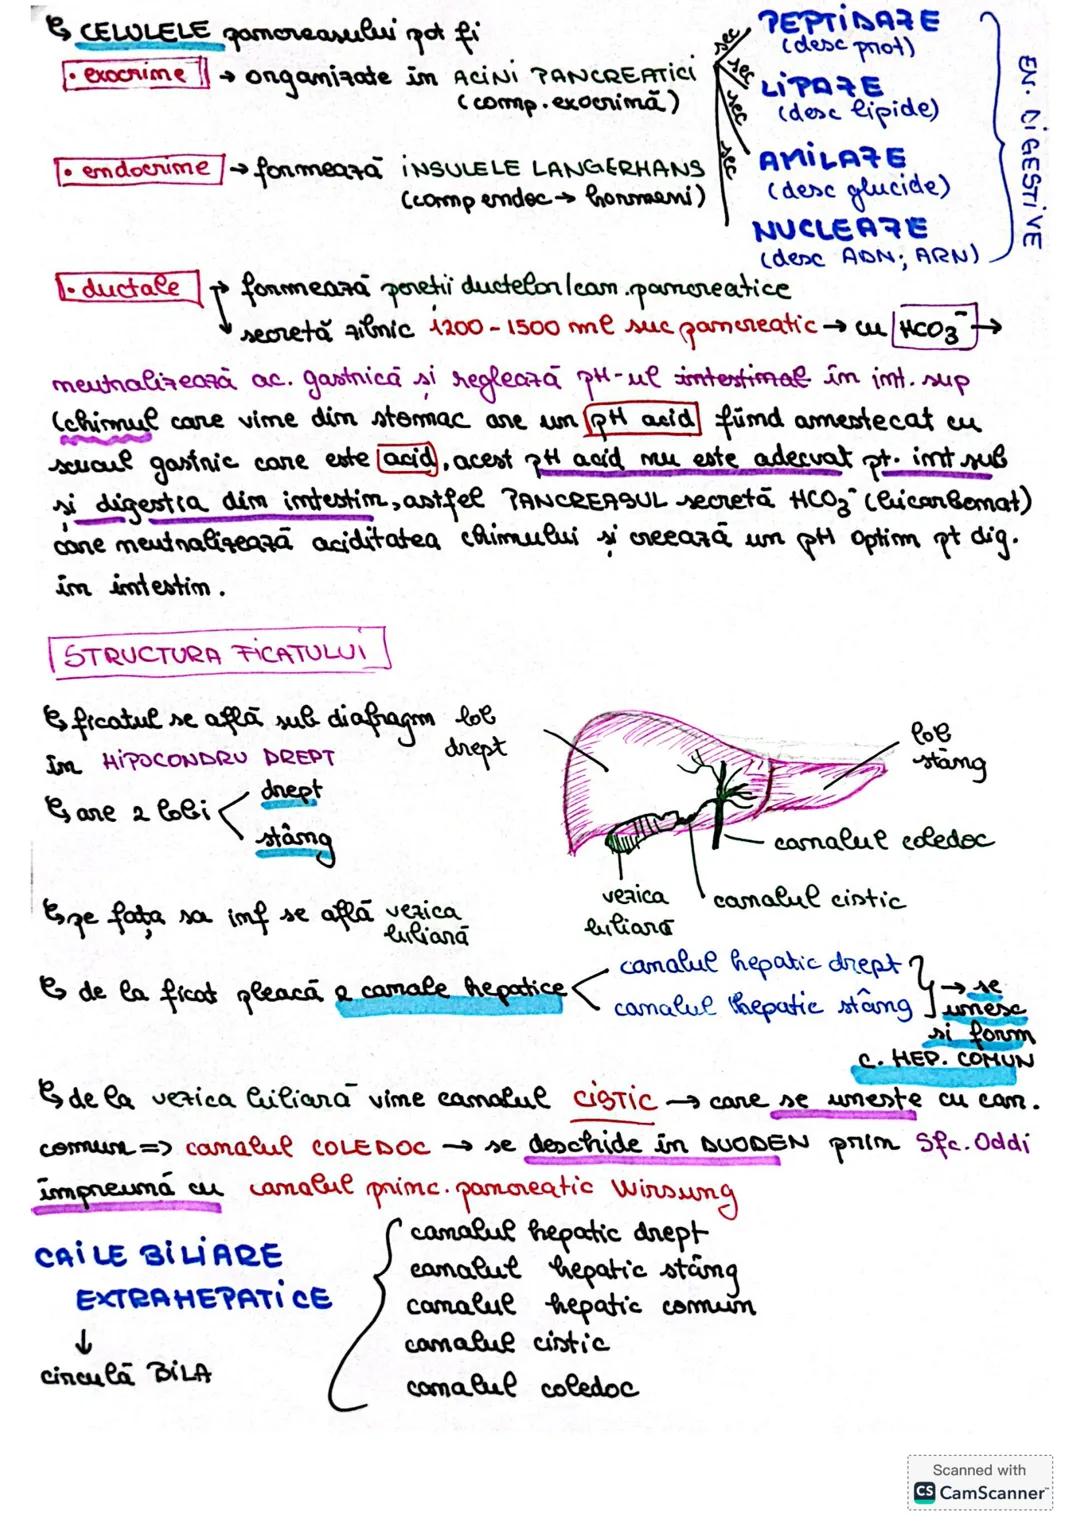 CELULELE pancreasului pot fi
• exocrine → organizate în ACINI PANCREATICI
(comp. exocrină)
sec PEPTIDAZE
(desc prot)
sec LIPAZE
(desc lipide)
sec AMILAZE
(desc glucide)
sec NUCLEAZE
(desc ADN; ARN)
EN. DIGESTIVE
• endocrine → formează INSULELE LANGERHANS
(comp endoc → hormoni)
• ductale → formează pereții ductelor/can. pancreatice
secretă zilnic 1200-1500 ml suc pancreatic → cu HCO3⁻ →
neutralizează ac. gastrică și reglează pH-ul intestinal în int. sup
(chimul care vine din stomac are un pH acid fiind amestecat cu
sucul gastric care este acid, acest pH acid nu este adecvat pt. int sub
și digestia din intestin, astfel PANCREASUL secretă HCO3⁻ (bicarbonat)
care neutralizează aciditatea chimului și creează un pH optim pt dig.
în intestin.
STRUCTURA FICATULUI
ficatul se află sub diafragm
în HIPOCONDRU DREPT
are 2 lobi
drept
stâng
lob
drept
lob
stâng
canalul coledoc
canalul cistic
vezica
biliară
pe fața sa inf se află vezica
biliară
de la ficat pleacă 2 canale hepatice
canalul hepatic drept
canalul hepatic stâng
→ se
unesc
si form
C. HEP. COMUN
de la vezica biliară vine canalul CISTIC → care se unește cu can.
comun => canalul COLEDOC → se deschide în DUODEN prin Sfc. Oddi
împreună cu canalul princ. pancreatic Wirsung
CAILE BILIARE
EXTRAHEPATICE
↓
circulă BILA
canalul hepatic drept
canalul hepatic stâng
canalul hepatic comun
canalul cistic
canalul coledoc
Scanned with
CS CamScanner